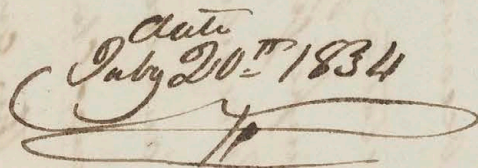 date
July 20th 1834